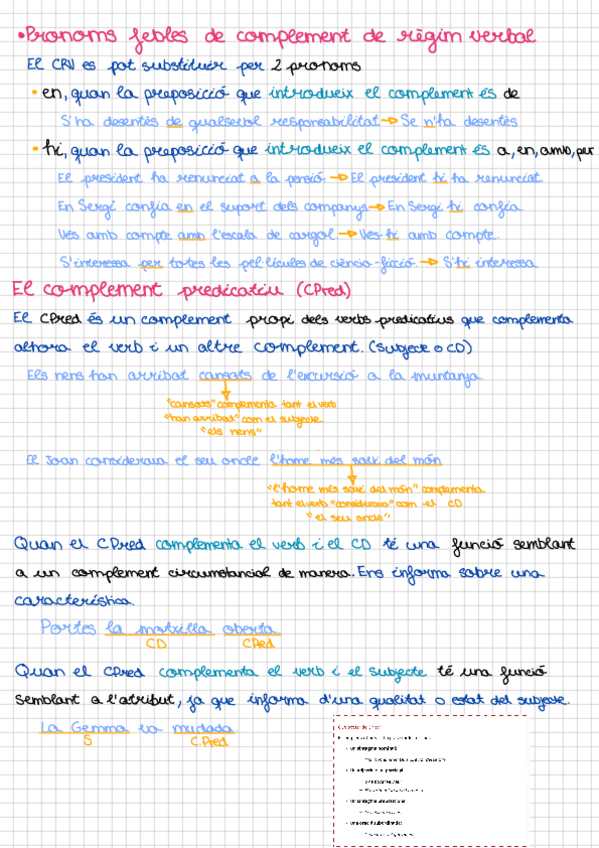 •Pronoms febles de complement de règim verbal
El CRV es pot substituir per 2 pronoms
• en, quan la preposició que introdueix el complement és de
S'ha desentès de qualsevol responsabilitat → Se n'ha desentès
• hi, quan la preposició que introdueix el complement és a, en, amb, per
El president ha renunciat a la pensió. → El president hi ha renunciat
En Sergi confia en el suport dels companys → En Sergi hi confia
Vés amb compte amb l'escala de cargol → Vés-hi amb compte.
S'interessa per totes les pel·lícules de ciència-ficció. → S'hi interessa
El complement predicatiu (CPred)
El CPred és un complement propi dels verbs predicatius que complementa
alhora el verb i un altre complement. (Subjecte o CD)
Els nens han arribat cansats de l'excursió a la muntanya
"cansats" complementa tant el verb
"han arribat" com el subjecte
"els nens"
El Joan considerava el seu oncle l'home més savi del món
"l'home més savi del món" complementa
tant el verb "considerava" com el CD
"el seu oncle"
Quan el CPred complementa el verb i el CD té una funció semblant
a un complement circumstancial de manera. Ens informa sobre una
característica.
Portes la motxilla oberta
CD CPred
Quan el CPred complementa el verb i el subjecte té una funció
semblant a l'atribut, ja que informa d'una qualitat o estat del subjecte.
La Gemma va mudada
S C.Pred